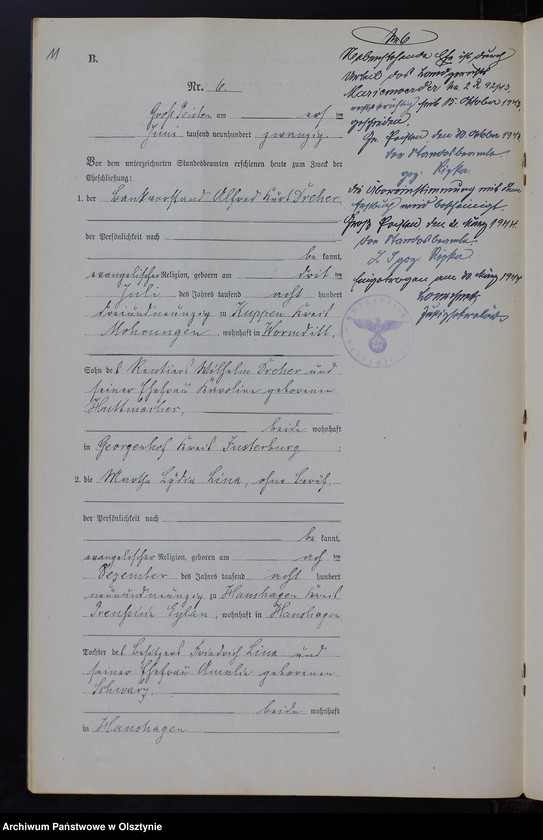 11
B.
Nr. 6.
am
Juni tausend neunhundert zwanzig.
Vor dem unterzeichneten Standesbeamten erschienen heute zum Zweck der
Eheschließung:
1. der Bankvorstand Alfred Kurt Dreher
der Persönlichkeit nach
be kannt,
evangelischer Religion, geboren am
Juli des Jahres tausend acht hundert
dreiundneunzig zu Kuppen Kreis
Mohrungen, wohnhaft in Wormditt,
Sohn des Rentiers Wilhelm Dreher und
seiner Ehefrau Karoline geborenen
Huttmacher,
beide wohnhaft
in Georgenhof Kreis Insterburg ;
2. die Martha Lydia Link, ohne Beruf
der Persönlichkeit nach
be kannt,
evangelischer Religion, geboren am
Dezember des Jahres tausend acht hundert
neunundneunzig zu Hanshagen Kreis
Preußisch Eylau, wohnhaft in Hanshagen
Tochter des Besitzers Friedrich Link und
seiner Ehefrau Amalie geborenen
Schwarz
beide wohnhaft
in Hanshagen
No 6
Nebenstehende Ehe ist durch
Urteil des Landgerichts
92/43,
rechtskräftig seit 15. Oktober 1943,
geschieden.
Gr. Peisten, den Oktober 194
Der Standesbeamte
gez.
Die Übereinstimmung mit dem
Erstbuch wird bescheinigt.
Groß Peisten, den März 1944.
Der Standesbeamte
gez.
Eingetragen am März 1944
Archiwum Państwowe w Olsztynie